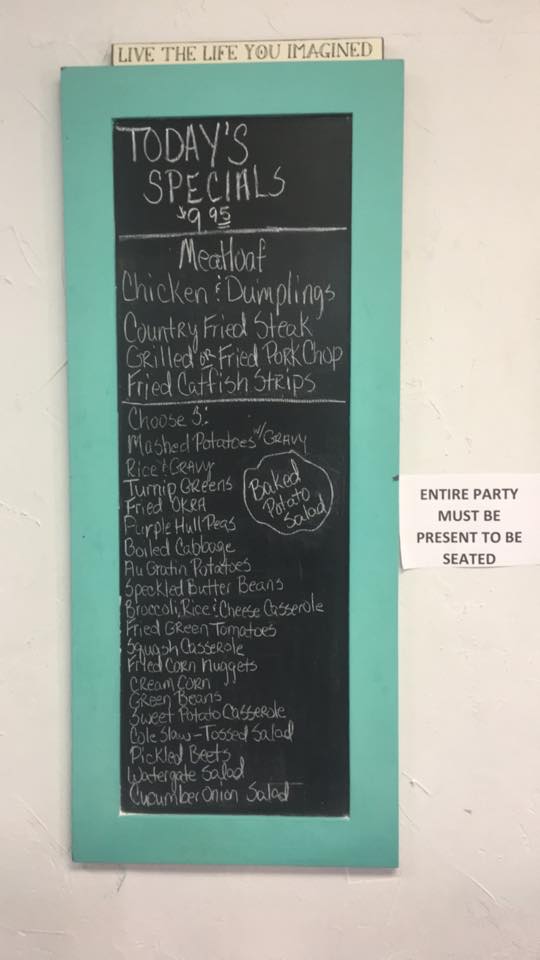 LIVE THE LIFE YOU IMAGINED
TODAY'S
SPECIALS
$9.95
Meatloaf
Chicken & Dumplings
Country Fried Steak
Grilled or Fried Pork Chop
Fried Catfish Strips
Choose 3:
Mashed Potatoes w/ Gravy
Rice & Gravy
Turnip Greens
Fried Okra
Purple Hull Peas
Boiled Cabbage
Au Gratin Potatoes
Speckled Butter Beans
Broccoli, Rice & Cheese Casserole
Fried Green Tomatoes
Squash Casserole
Fried Corn Nuggets
Cream Corn
Green Beans
Sweet Potato Casserole
Cole Slaw - Tossed Salad
Pickled Beets
Watergate Salad
Cucumber Onion Salad
Baked
Potato
Salad
ENTIRE PARTY
MUST BE
PRESENT TO BE
SEATED